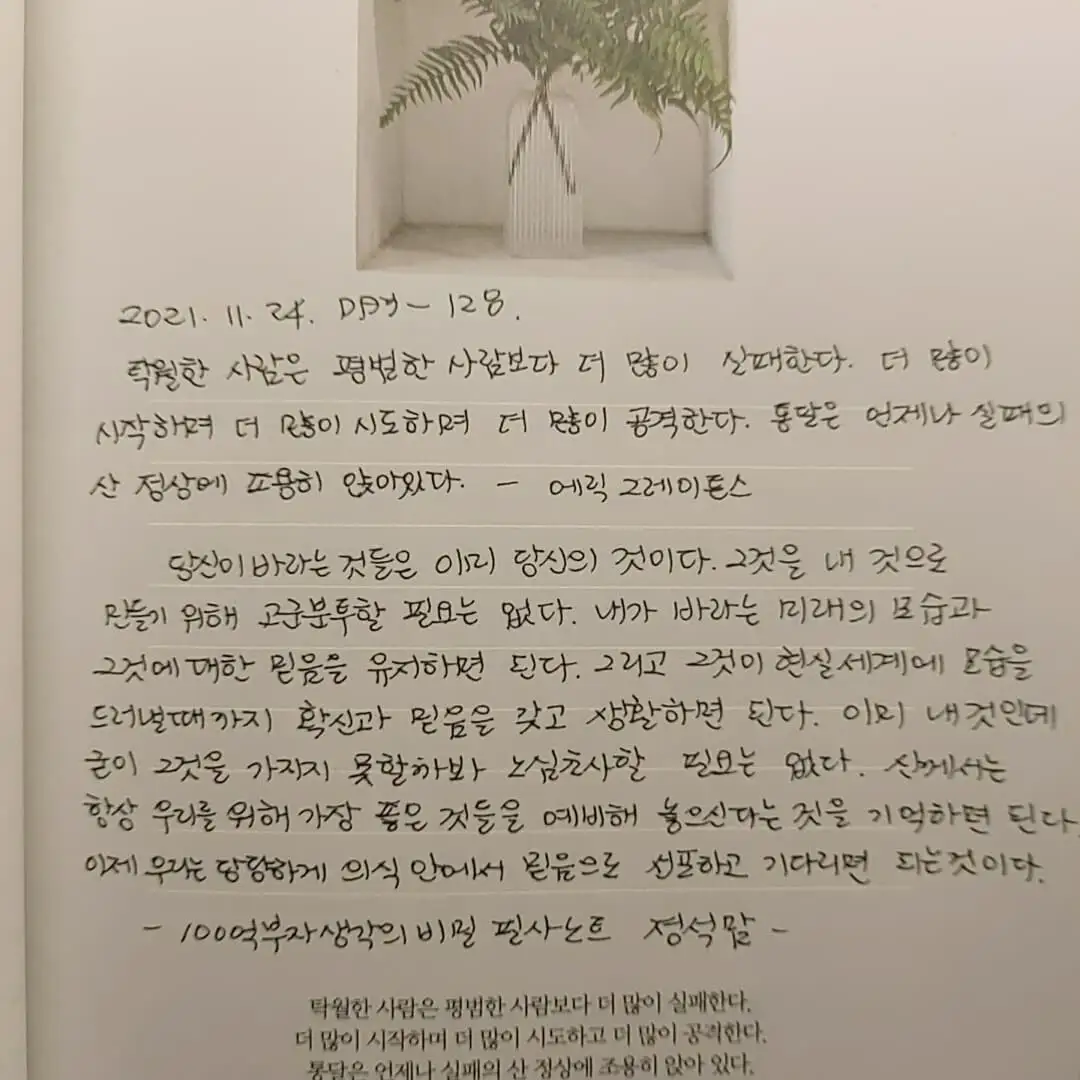 2021. 11. 24. DAY - 128.
탁월한 사람은 평범한 사람보다 더 많이 실패한다. 더 많이
시작하며 더 많이 시도하며 더 많이 공격한다. 통달은 언제나 실패의
산 정상에 조용히 앉아있다. - 에릭 그레이튼스
당신이 바라는 것들은 이미 당신의 것이다. 그것을 내 것으로
만들기 위해 고군분투할 필요는 없다. 내가 바라는 미래의 모습과
그것에 대한 믿음을 유지하면 된다. 그리고 그것이 현실세계에 모습을
드러낼때까지 확신과 믿음을 갖고 생활하면 된다. 이미 내것인데
굳이 그것을 가지지 못할까봐 노심초사할 필요는 없다. 신께서는
항상 우리를 위해 가장 좋은 것들을 예비해 놓으신다는 것을 기억하면 된다
이제 우리는 당당하게 의식 안에서 믿음으로 선포하고 기다리면 되는것이다.
- 100억부자생각의 비밀 필사노트 정석맘 -
탁월한 사람은 평범한 사람보다 더 많이 실패한다.
더 많이 시작하며 더 많이 시도하고 더 많이 공격한다.
통달은 언제나 실패의 산 정상에 조용히 앉아 있다.